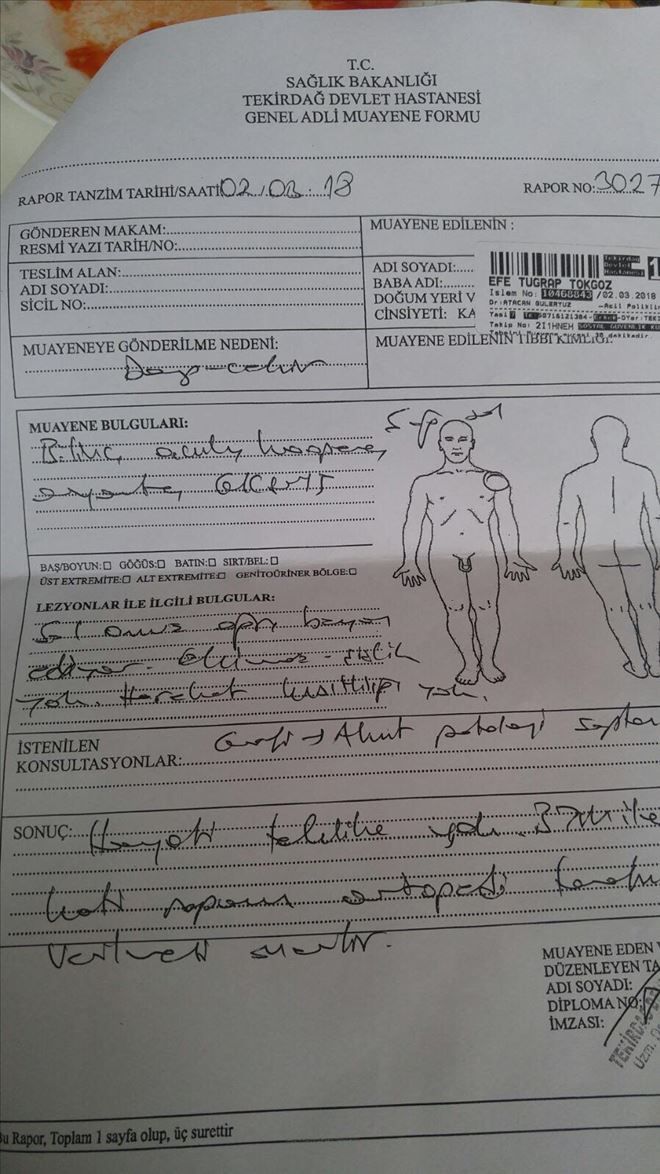 T.C.
SAĞLIK BAKANLIĞI
TEKİRDAĞ DEVLET HASTANESİ
GENEL ADLİ MUAYENE FORMU
RAPOR TANZİM TARİHİ/SAATİ 02/03.: 18
RAPOR NO: 3027
GÖNDEREN MAKAM:
RESMİ YAZI TARİH/NO:
MUAYENE EDİLENİN :
TESLİM ALAN:
ADI SOYADI:
SİCİL NO:
ADI SOYADI:
BABA ADI:
DOĞUM YERİ V
CİNSİYETİ: KA
Tekirdağ
Devlet
Hastanesi
1
EFE TUGRAP TOKGOZ
Islem No: 10468843 /02.03.2018
Dr: ATACAN GULERYUZ -Acil Poliklin
Takip No: 2I1HNEH SOSYAL GUVENLIK KU
MUAYENEYE GÖNDERİLME NEDENİ:
MUAYENE EDİLENİN TIBBİ KİMLİĞİ:
MUAYENE BULGULARI:
Bilinç açık, koopere,
oryante,
BAŞ/BOYUN:□ GÖĞÜS:□ BATIN:□ SIRT/BEL:□
ÜST EXTREMİTE:□ ALT EXTREMİTE:□ GENİTOÜRİNER BÖLGE:□
LEZYONLAR İLE İLGİLİ BULGULAR:
Sol omuz ağrı beyan
ediyor. Ekimoz - şişlik
yok. Hareket kısıtlılığı yok.
İSTENİLEN
KONSULTASYONLAR:
Grafi → Akut patoloji saptan
SONUÇ: Hayati tehlike yok.
kati raporu ortopedi
MUAYENE EDEN
DÜZENLEYEN TA
ADI SOYADI:
DİPLOMA NO:
İMZASI:
Bu Rapor, Toplam 1 sayfa olup, üç surettir